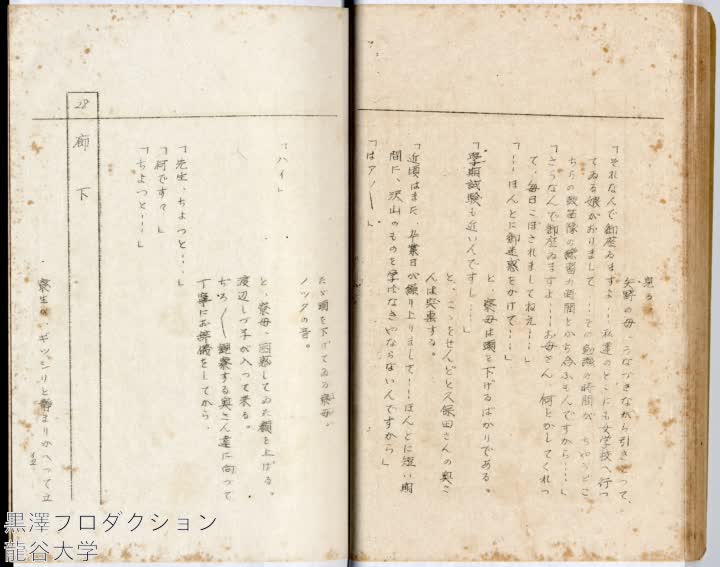 見る。
矢野の母、うなづきながら引きとつて、
「それなんで御座ゐますよ……私達のとこにも女学校へ行つ
てゐる娘がおりまして……その勉強の時間が、ちやうどこ
ちらの鼓笛隊の練習の時間とかち合ふもんですから……」
「さうなんで御座ゐますよ……お母さん、何とかしてくれつ
て、毎日こぼされましてねえ……」
「……ほんとに御迷惑をかけて……」
と、寮母は頭を下げるばかりである。
「学期試験も近いんですし……」
と、こゝをせんどと久保田さんの奥さ
んは突裏する。
「近頃はまた、卒業日が繰り上りまして……ほんとに短い期
間に、沢山のものを学ばなきやならないんですから」
「はアノ〱」
たゞ頭を下げてゐる寮母。
ノックの音。
「ハイ」
と、寮母、困惑してゐた顔を上げる。
渡辺しづ子が入つて来る。
ぢろ〱観察する奥さん達に向つて
丁寧にお辞儀をしてから、
「先生、ちよつと……」
「何です々」
「ちよつと……」
28 廊下
寮生が、ギッシリと静まりかへつて立
12
黒澤プロダクション
龍谷大学